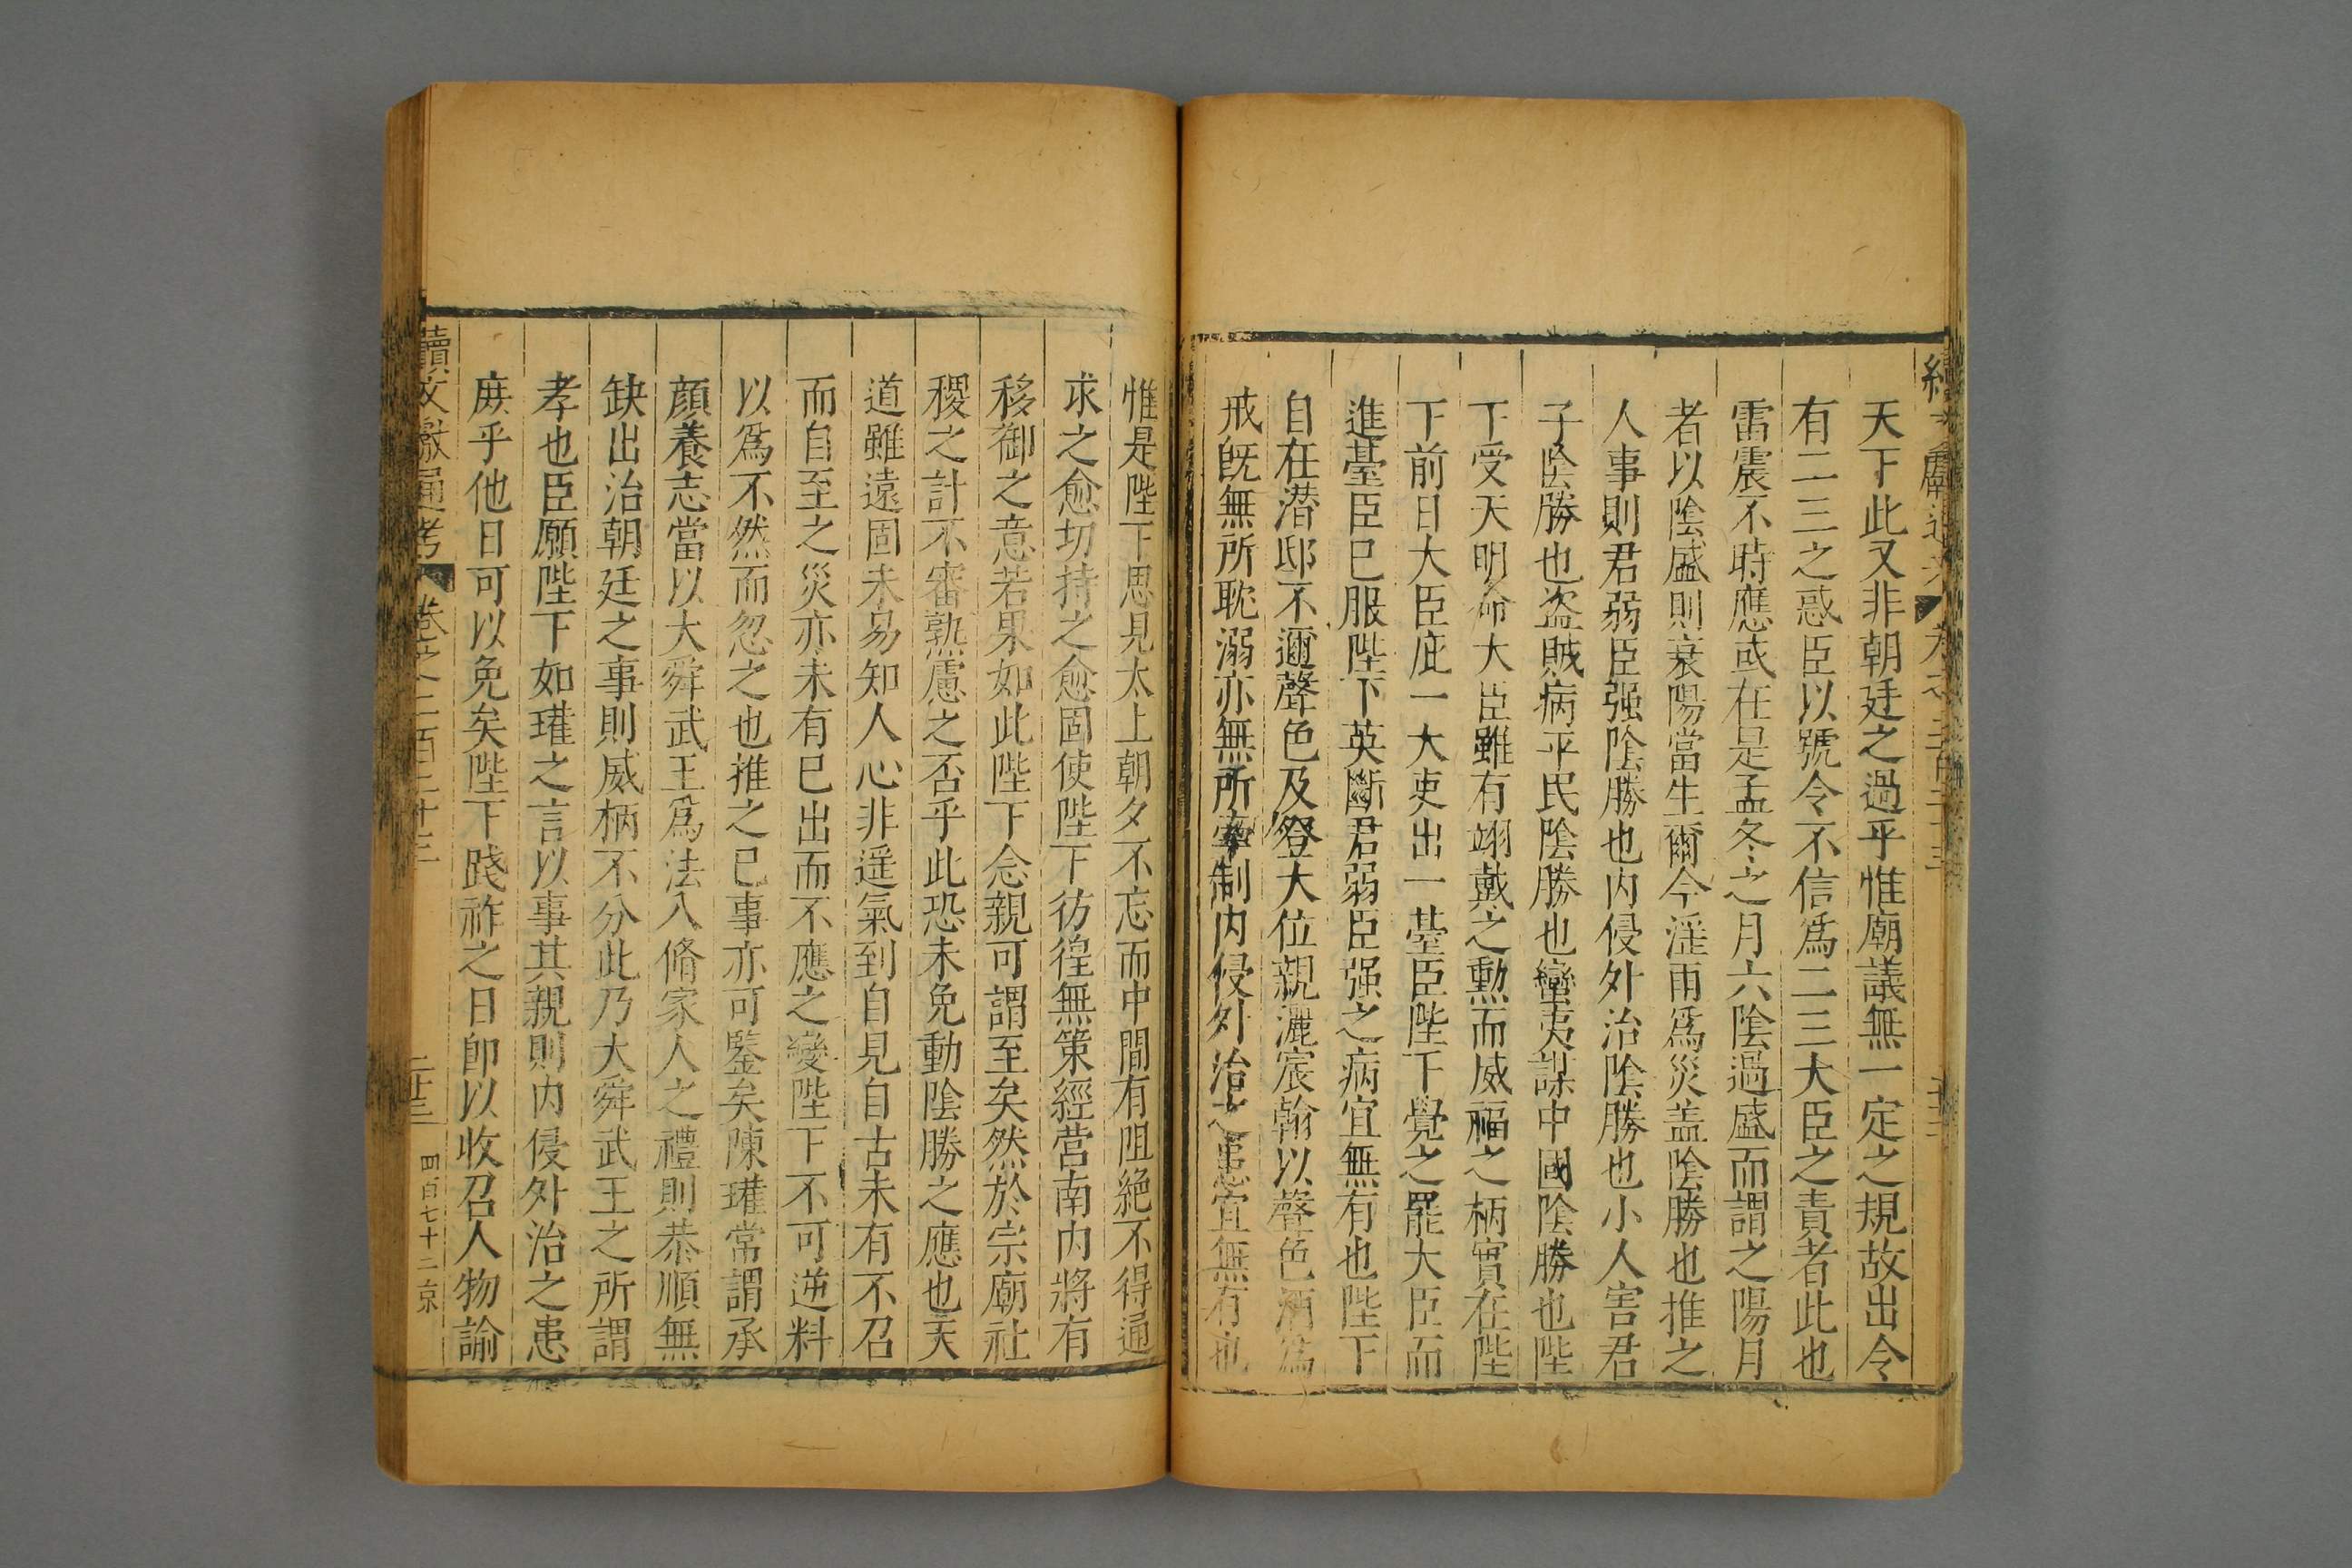 天下此又非朝廷之過乎惟廟議無一定之規故出令
有二三之惑臣以號令不信爲二三大臣之責者此也
雷震不時應或在是孟冬之月六陰過盛而謂之陽月
者以陰盛則衰陽當生爾今淫雨爲災盖陰勝也推之
人事則君弱臣强陰勝也内侵外治陰勝也小人害君
子陰勝也盗賊病平民陰勝也蠻夷謀中國陰勝也陛
下受天明命大臣雖有翊戴之勲而威福之柄實在陛
下前日大臣庇一大吏出一䑓臣陛下覺之罷大臣而
進䑓臣已服陛下英斷君弱臣强之病宜無有也陛下
自在潜邸不邇聲色及登大位親灑宸翰以聲色酒爲
戒旣無所耽溺亦無所牽制内侵外治之患宜無有也
惟是陛下思見太上朝夕不忘而中間有阻絶不得通
求之愈切持之愈固使陛下彷徨無策經營南内將有
移御之意若果如此陛下念親可謂至矣然於宗廟社
稷之計不審孰慮之否乎此恐未免動陰勝之應也天
道雖遠固未易知人心非遥氣到自見自古未有不召
而自至之災亦未有已出而不應之變陛下不可逆料
以爲不然而忽之也推之已事亦可鑒矣陳瓘常謂承
顔養志當以大舜武王爲法入脩家人之禮則恭順無
缺出治朝廷之事則威柄不分此乃大舜武王之所謂
孝也臣願陛下如瓘之言以事其親則内侵外治之患
庶乎他日可以免矣陛下踐祚之日卽以收召人物諭
續文獻通考 卷之二百二十三 二十三 四百七十二 京